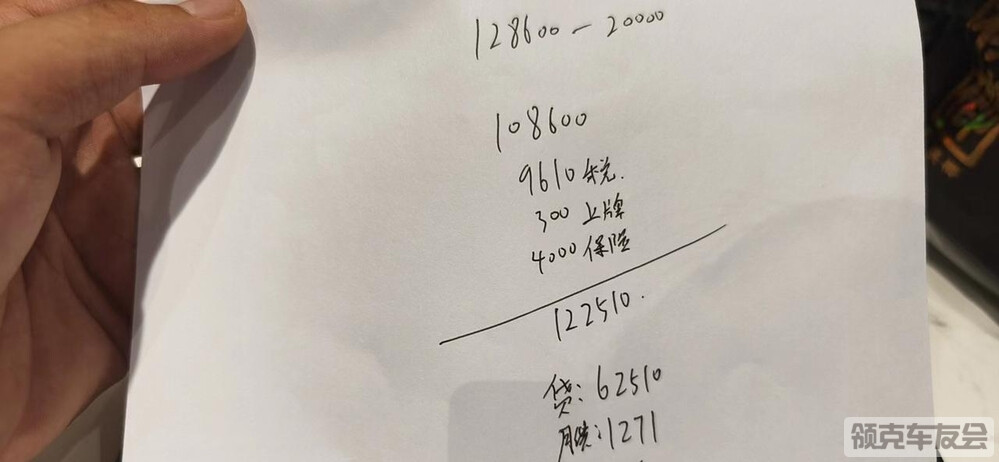 128600-20000
108600
9610税.
300上牌
4000保险
122510.
贷:62510
月供:1271
领克车友会